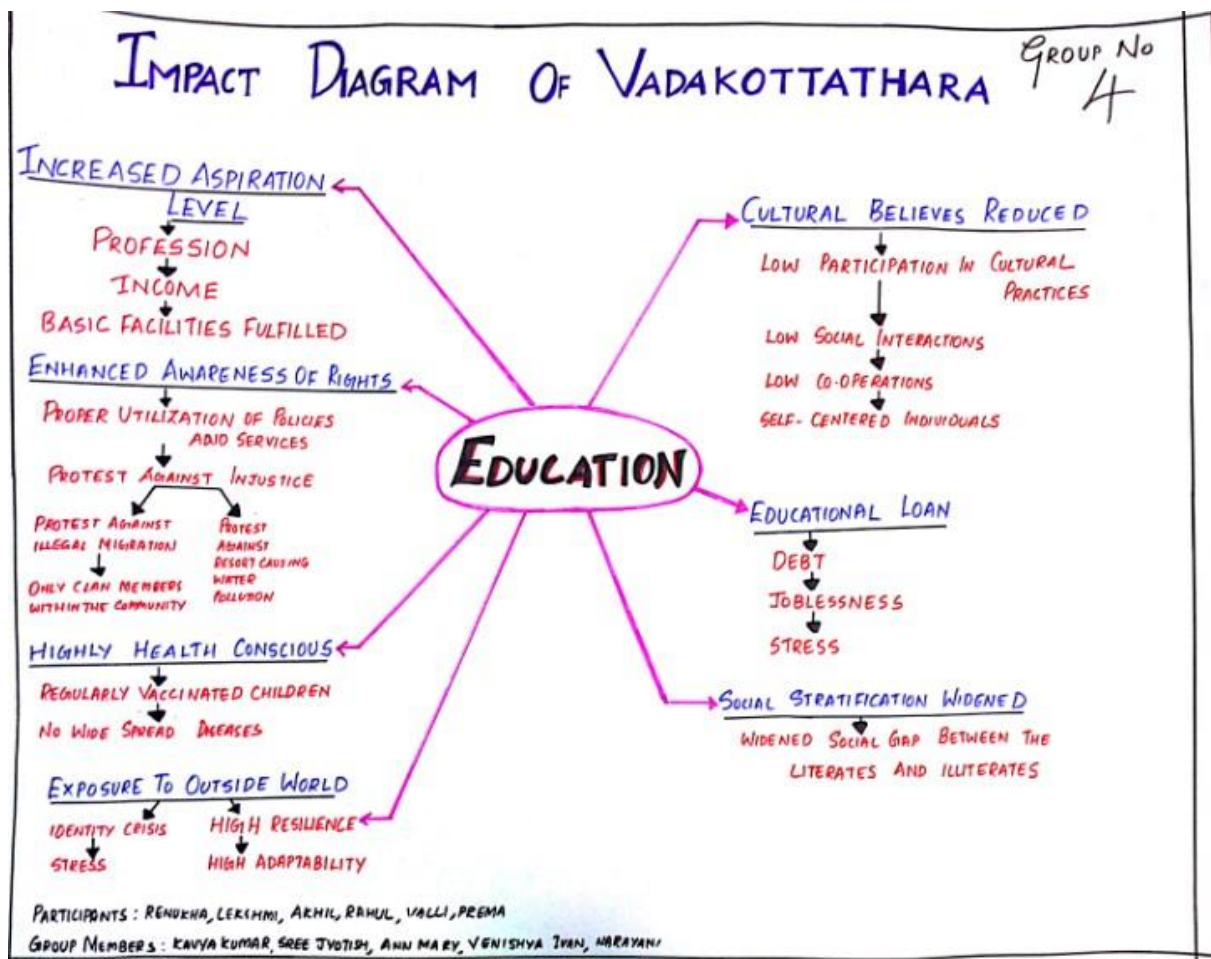 IMPACT DIAGRAM OF VADAKOTTATHARA
GROUP NO
4
INCREASED ASPIRATION
LEVEL
PROFESSION
INCOME
BASIC FACILITIES FULFILLED
ENHANCED AWARENESS OF RIGHTS
PROPER UTILIZATION OF POLICIES
AND SERVICES
PROTEST AGAINST INJUSTICE
PROTEST AGAINST
ILLEGAL MIGRATION
ONLY CLAN MEMBERS
WITHIN THE COMMUNITY
PROTEST
AGAINST
RESORT CAUSING
WATER
POLLUTION
HIGHLY HEALTH CONSCIOUS
REGULARLY VACCINATED CHILDREN
NO WIDE SPREAD DISEASES
EXPOSURE TO OUTSIDE WORLD
IDENTITY CRISIS
STRESS
HIGH RESILIENCE
HIGH ADAPTABILITY
EDUCATION
CULTURAL BELIEVES REDUCED
LOW PARTICIPATION IN CULTURAL
PRACTICES
LOW SOCIAL INTERACTIONS
LOW CO-OPERATIONS
SELF-CENTERED INDIVIDUALS
EDUCATIONAL LOAN
DEBT
JOBLESSNESS
STRESS
SOCIAL STRATIFICATION WIDENED
WIDENED SOCIAL GAP BETWEEN THE
LITERATES AND ILLITERATES
PARTICIPANTS : RENUKHA, LEKSHMI, AKHIL, RAHUL, VALLI, PREMA
GROUP MEMBERS : KAVYA KUMAR, SREE JYOTISH, ANN MARY, VENISHYA IVAN, NARAYANI